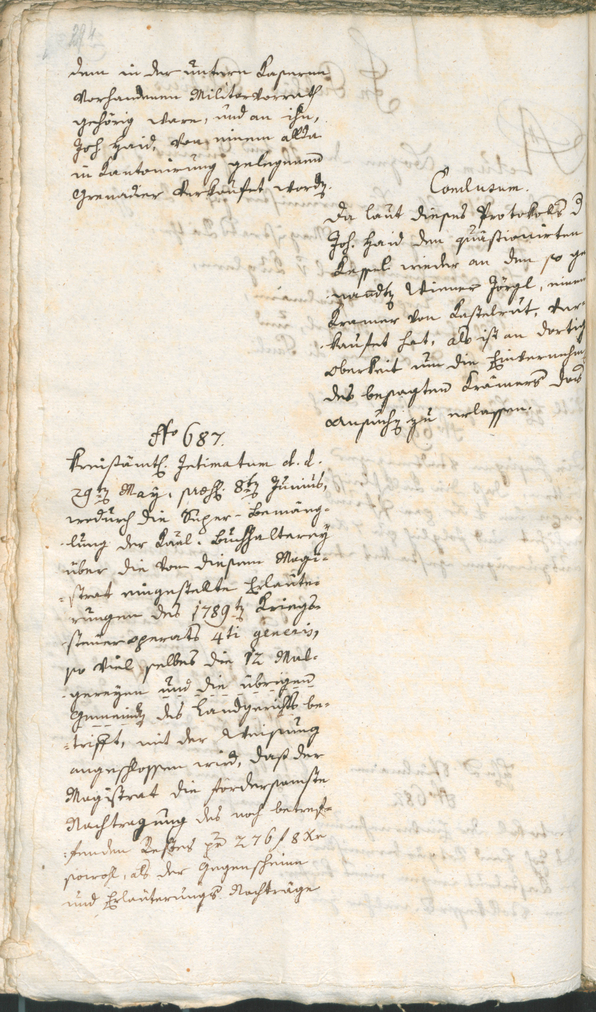 dem in der untern Caserne
vorhandenen Militärvorrath
gehörig ware, und an ihn,
Joh. Haid, von einem allda
in Kantonirung gelegenen
Grenadier verkaufet worden.
Conclusum.
Da laut dieses Protokols d
Joh. Haid den quästionirten
Kessel wieder an den so ge
nandten Wiener Jörgl, einen
Kramer von Kastelrut, ver-
kaufet hat, als ist an dortige
Oberkeit um die Einvernehm
des besagten Krämers das
Ansuchen zu erlassen.
No 687.
Kreisämtl. Intimatum d. d.
29ten May, praes. 8ten Junius,
wodurch die Super-Bemäng-
lung der Buchhalterey
über die von diesem Magi-
strat eingestelte Erläute-
rungen des 1789ten Kriegs-
steueroperats 4ti generis,
so viel selbes die 12 Mal-
gereyen und die übrigen
Gemeinden des Landgerichts be-
trifft, mit der Weisung
angeschlossen wird, daß der
Magistrat die fördersamste
Nachtragung des noch betref-
fenden Restes pr 276 f 8 xr
sowol, als der Gegenscheine
und Erläuterungs Nachträge